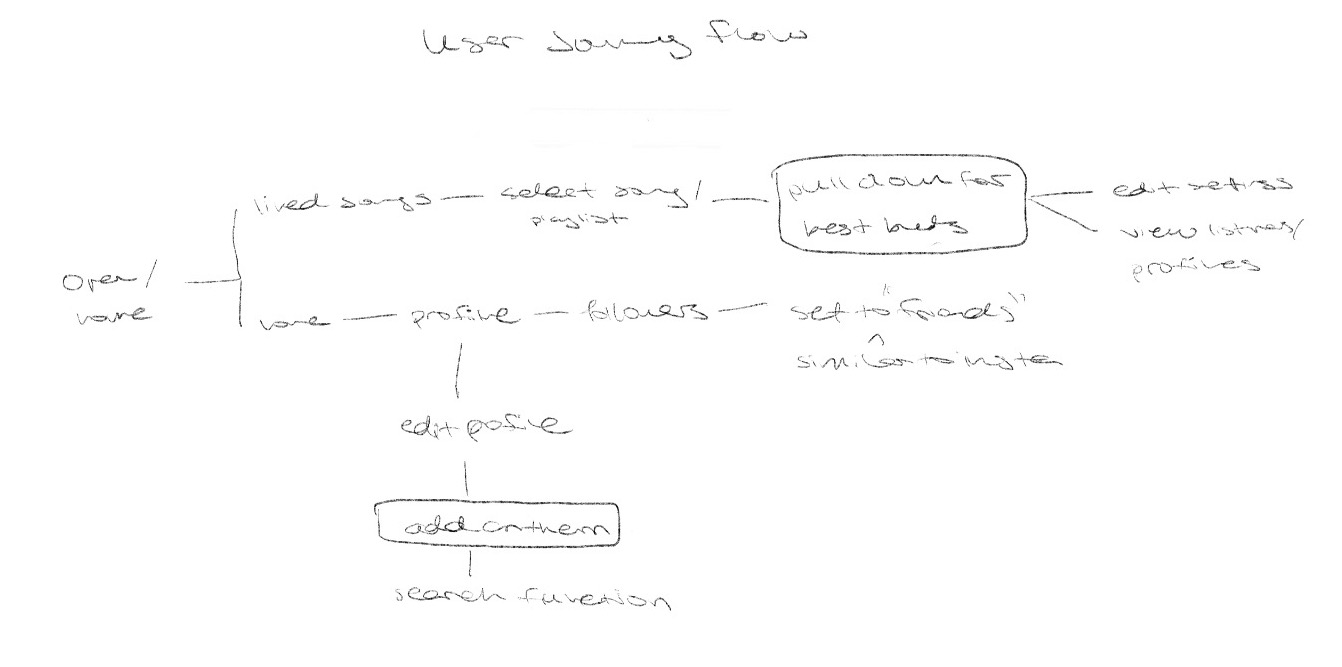 User Journey Flow
liked songs
select song/
playlist
pull down for
best buds
edit settings
view listners/
profiles
Open/
home
home
profile
followers
set to "friends"
similar to insta
edit profile
add anthem
search function